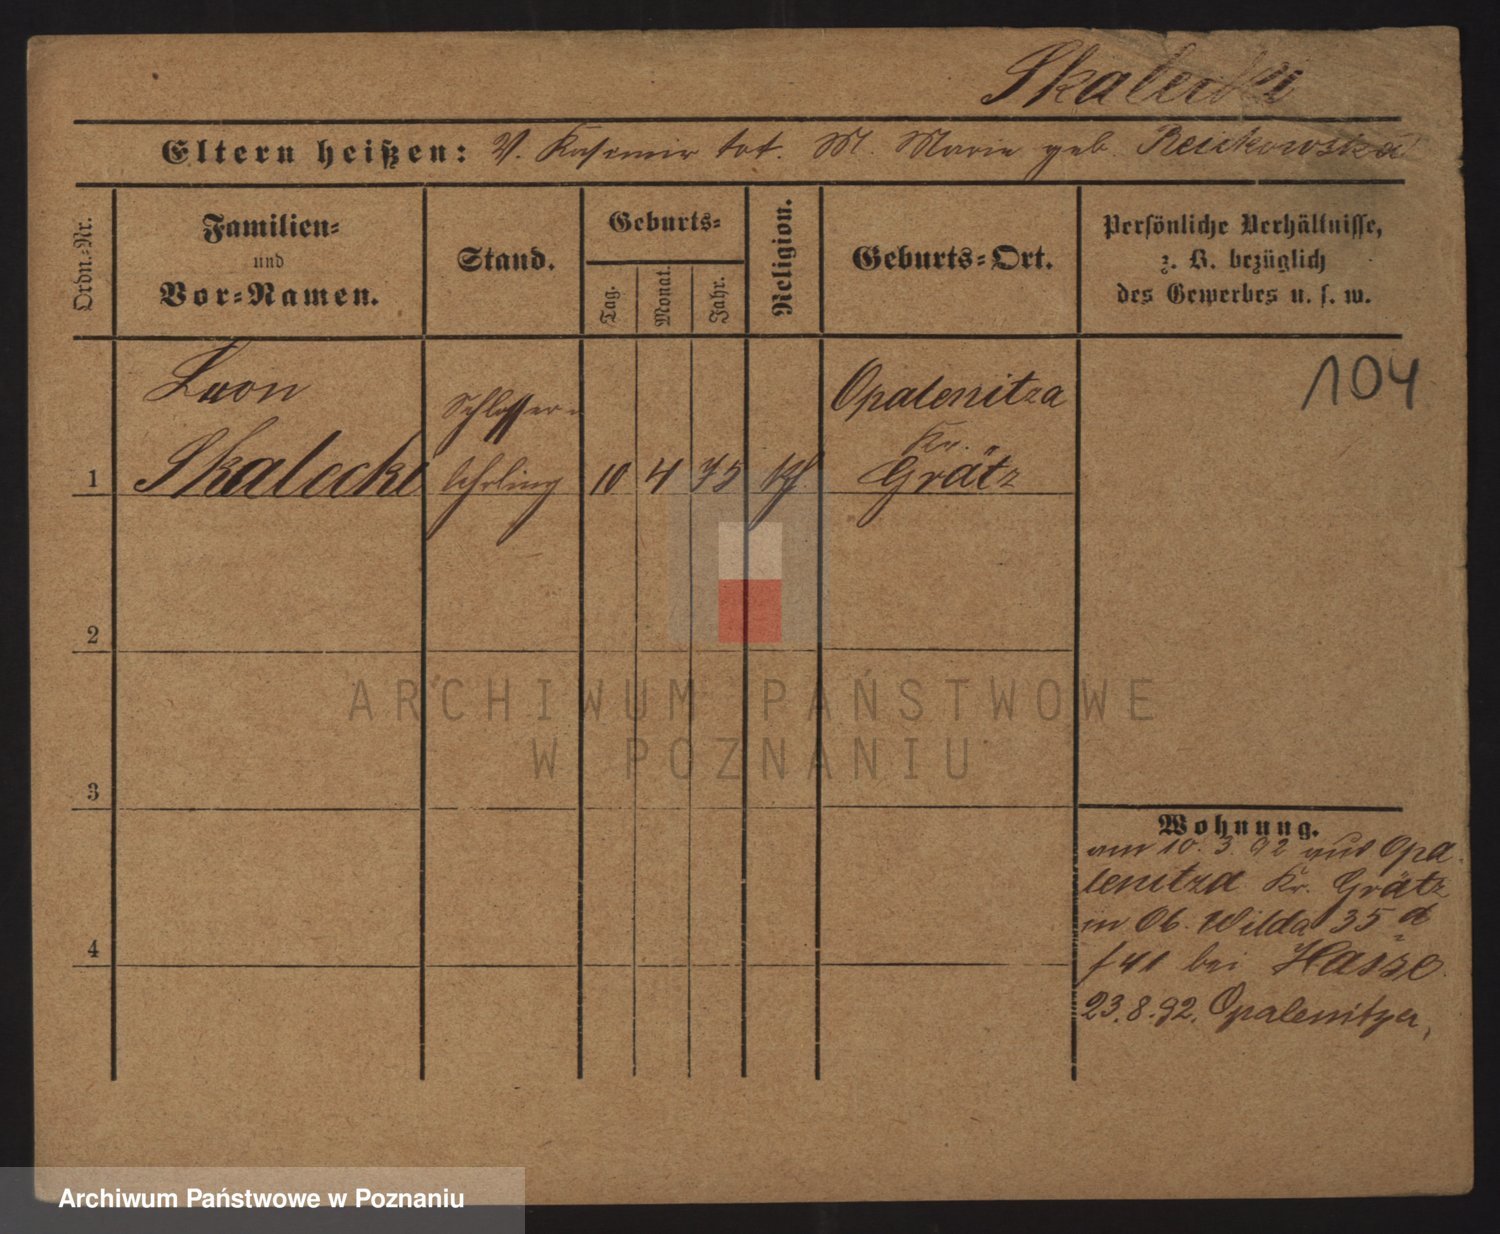 Skalecki
Eltern heißen: V. Kasimir tot. M. Marie geb.
Ordn.-Nr.
Familien-
und
Vor-Namen.
Stand.
Geburts-
Tag.
Monat.
Jahr.
Religion.
Geburts-Ort.
Persönliche Verhältnisse,
z. B. bezüglich
des Gewerbes u. s. w.
104
Leon
Schlosser-
Opalenitza
Kr.
1 Skalecki lehrling 10 4 75 kth Grätz
2
3
4
ARCHIWUM PAŃSTWOWE
W POZNANIU
Wohnung.
am 10.3.92 aus Opa-
lenitza Kr. Grätz
in Ob. Wilda 35 a
f 41 bei Hasse
23.8.92. Opalenitza,
Archiwum Państwowe w Poznaniu